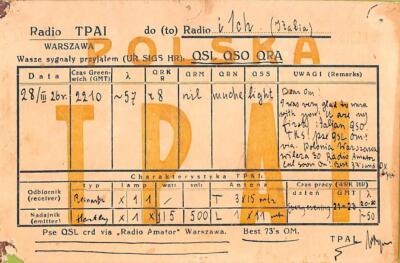 Radio TPAI do (to) Radio i1ch. (Italia)
WARSZAWA
POLSKA
Wasze sygnały przyjąłem (UR SIGS HR) QSL QSO QRA
Data Czas Greenwich (GMT) λ QRK R QRM QRN QSS UWAGI (Remarks)
28/III 26r. 2210 ~57 r8 nil muche light
Dear Om:
I was very glad to
with you. U are my
first italian QSO
TKS! Pse QSL om!
via. Polonia Warszawa
wilcza 30 Radio Amator
Cul soon Om! Best 73's om
TPAI
Charakterystyka TPAI:
typ lamp watt volt Antena Czas pracy (WRK HR)
Odbiornik (receiver) Reinartz X 1 1 / / T 3x15 mtr. dzień GMT λ
Nadajnik (emitter) Hartley 1 X 15 500 L 1 x 11 mt 21-23 ~50
Pse QSL crd via „Radio Amator" Warszawa. Best 73's OM. TPAI